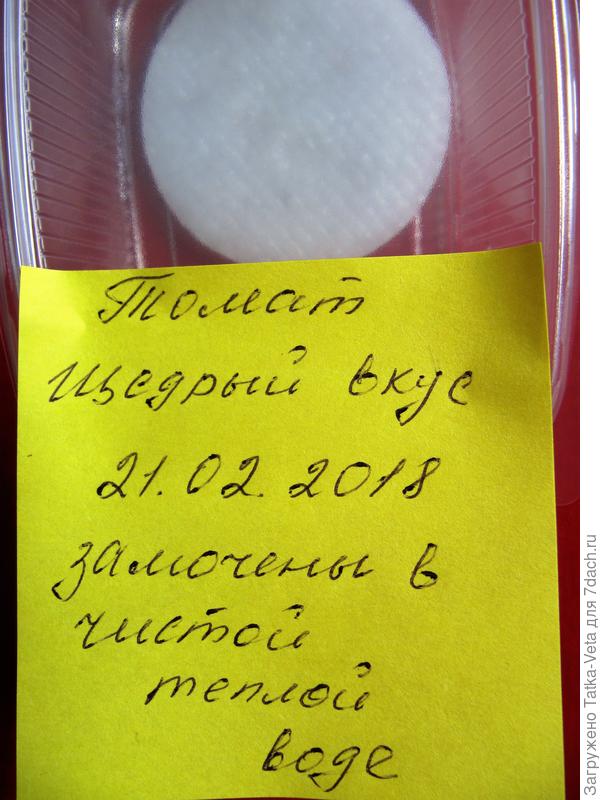 Томат
Щедрый вкус
21.02.2018
замочены в
чистой
теплой
воде
Загружено Tatka-Veta для 7dach.ru